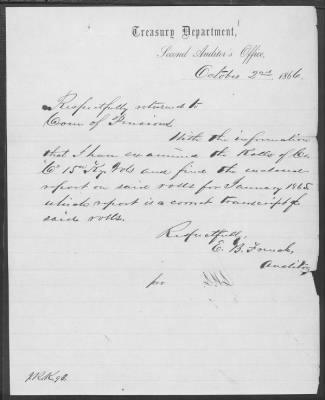 Treasury Department,
Second Auditor's Office,
October 2nd 1866.
Respectfully returned to
Com of Pensions
With the information
that I have examined the Rolls of Co
C 15" Ky Vols and find the enclosed
report on said rolls for January 1865
which report is a correct transcript of
said rolls.
Respectfully,
E. B. French
Auditor
per